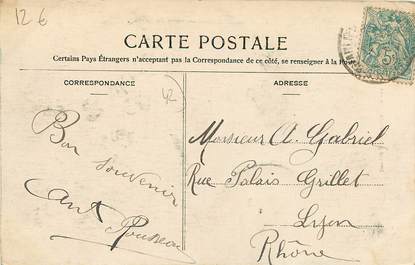 12 €
CARTE POSTALE
Certains Pays Étrangers n'acceptant pas la Correspondance de ce côté, se renseigner à la
CORRESPONDANCE
42
Bon souvenir
Ant Rousseau
ADRESSE
Monsieur A. Gabriel
Rue Palais Grillet
Lyon
Rhône